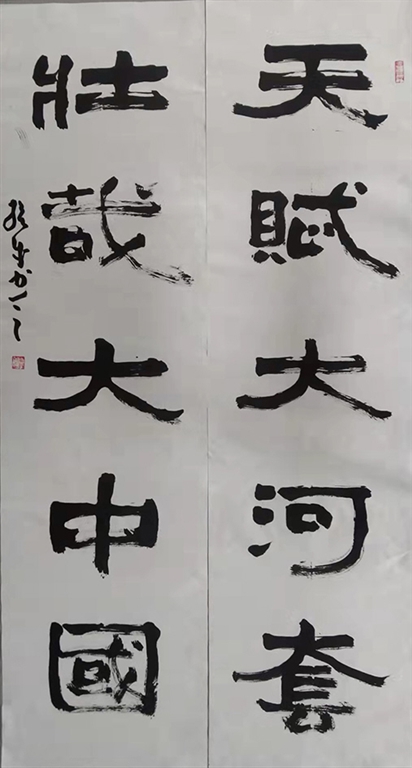 天賦大河套
壯哉大中國